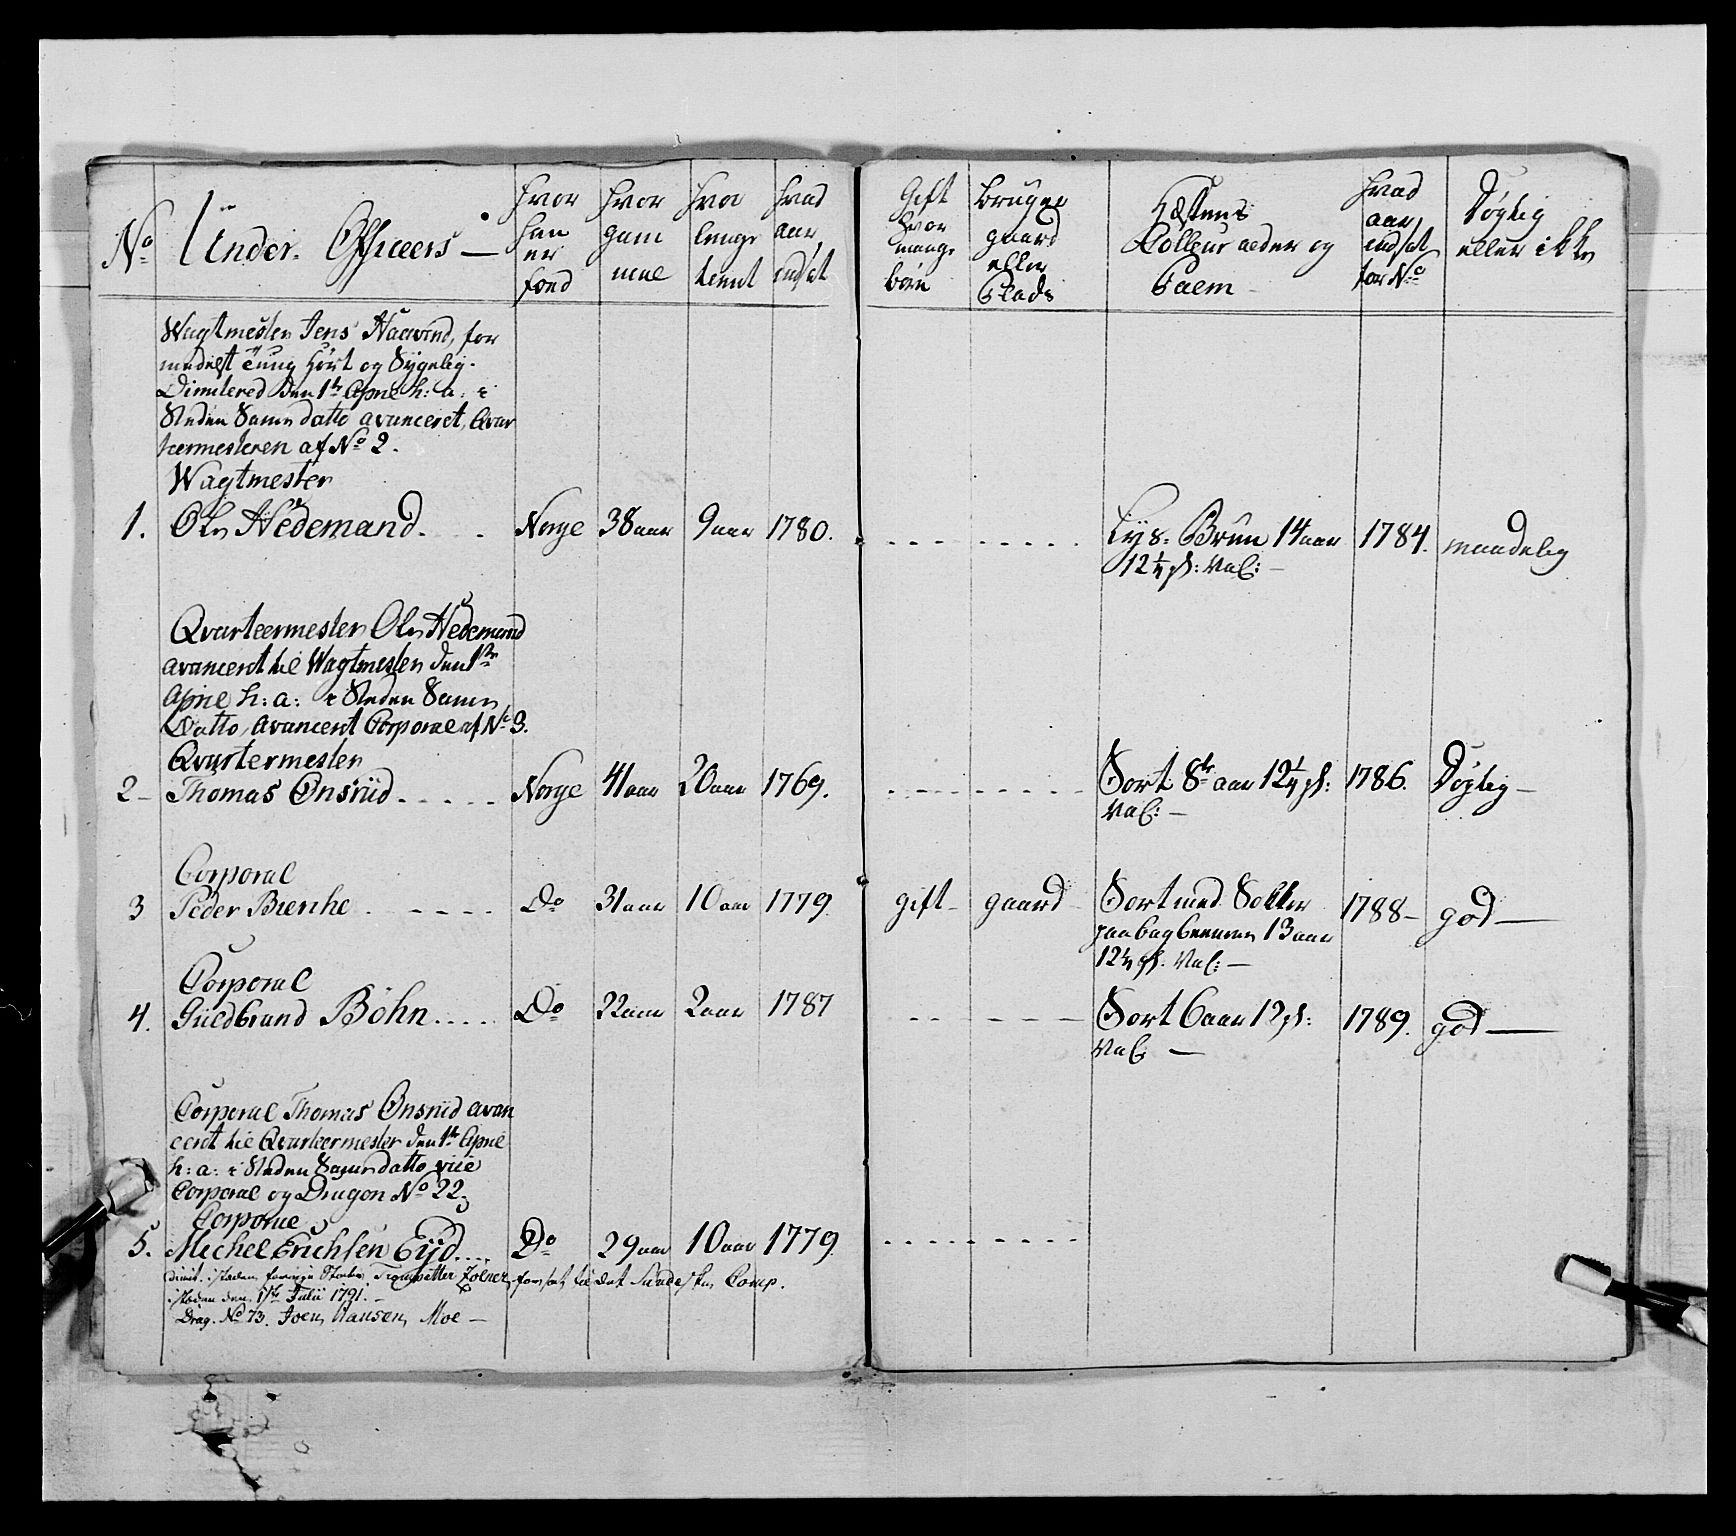 No
Under Officeers —
hvor
han
er
fød
hvor
gam
mel
hvor
lenge
tient
hvad
aar
indsat
Gift
hvor
mange
børn
bruger
gaard
eller
Plads
Hæstens
Colleur alder og
hvad
aar
indsat
for No
Døglig
eller ikke
Wagtmester Jens Haavind, for
medelst tung hørt og Sygelig
Dimitered Den 1te April h: a: i
Steden Samme datto avanceret, Qvar
teermesteren af No 2.
Wagtmester
1. Ole Hedemand. Norge 38 aar 9 aar 1780. Lys Brun 14 aar 1784. maadelig
12¼ qt: Val: —
Qvarteermester Ole Hedemand
avanceret til Wagtmester den 1te
April h: a: i Steden Samme
Datto, avanceret Corporal af No 3.
Qvartermester
2 — Thomas Onsrud Norge 41 aar 20 aar 1769. Sort 8te aar 12¼ qt: 1786. Døglig —
Val: —
Corporal
3 Peder Bienhe Do 31 aar 10 aar 1779 gift — gaard Sort med Sokker 1788 — god —
paa bag beenene 13 aar
12¼ qt. Val: —
Corporal
4. Gudbrand Bøhn Do 22 aar 2 aar 1787 Sort 6 aar 12 qt: 1789. god —
Val: —
Corporal Thomas Onsrud avan
ceret til Qvarteermester den 1te April
h: a: i Steden Samme datto
Corporal og Dragon No 22
Corporal
5. Michel Erichsen Eijd Do 29 aar 10 aar 1779
dimit. isteden forrige Trompetter Zølner forsat til det Comp.
isteden den 1ste Julii 1791. —
Drag. No 73. Joen Hansen Moe —